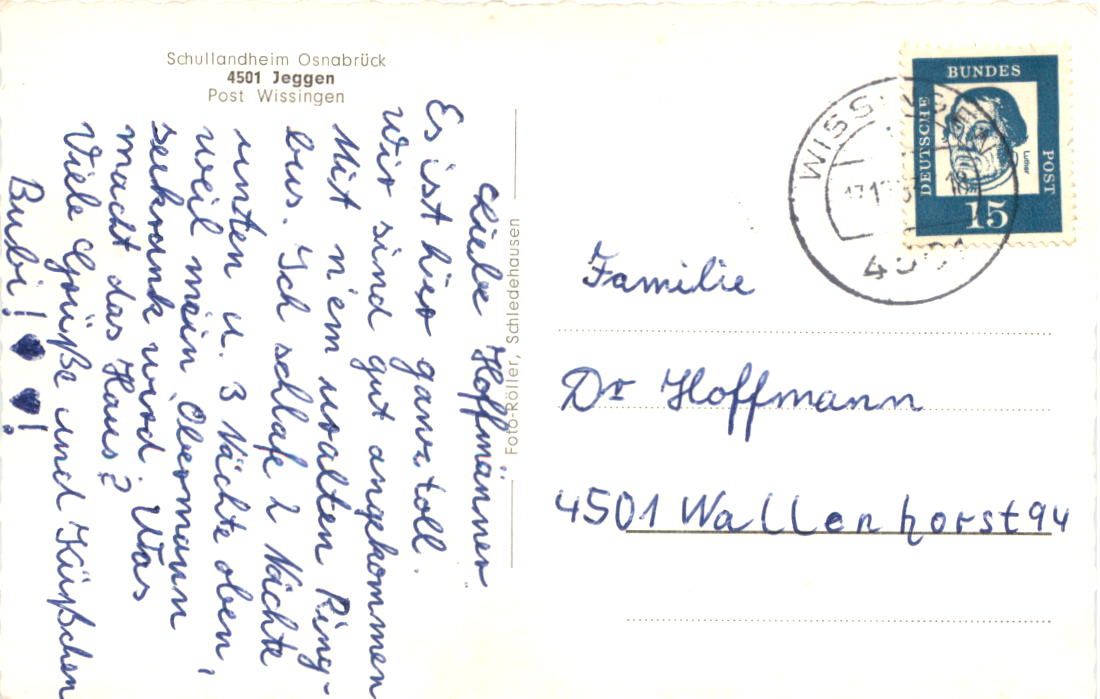 Schullandheim Osnabrück
4501 Jeggen
Post Wissingen
Liebe Hoffmänner
Es ist hier ganz toll.
Wir sind gut angekommen
Mit n'em uralten Ring-
bus. Ich schlafe 2 Nächte
unten u. 3 Nächte oben,
weil mein Obermann
seekrank wird. Was
macht das Haus?
Viele Grüße und Küßchen
Bubi!
!
Foto-Röller, Schledehausen
DEUTSCHE
BUNDES
POST
Luther
15
WISSINGEN
Familie
Dr Hoffmann
4501 Wallenhorst 94